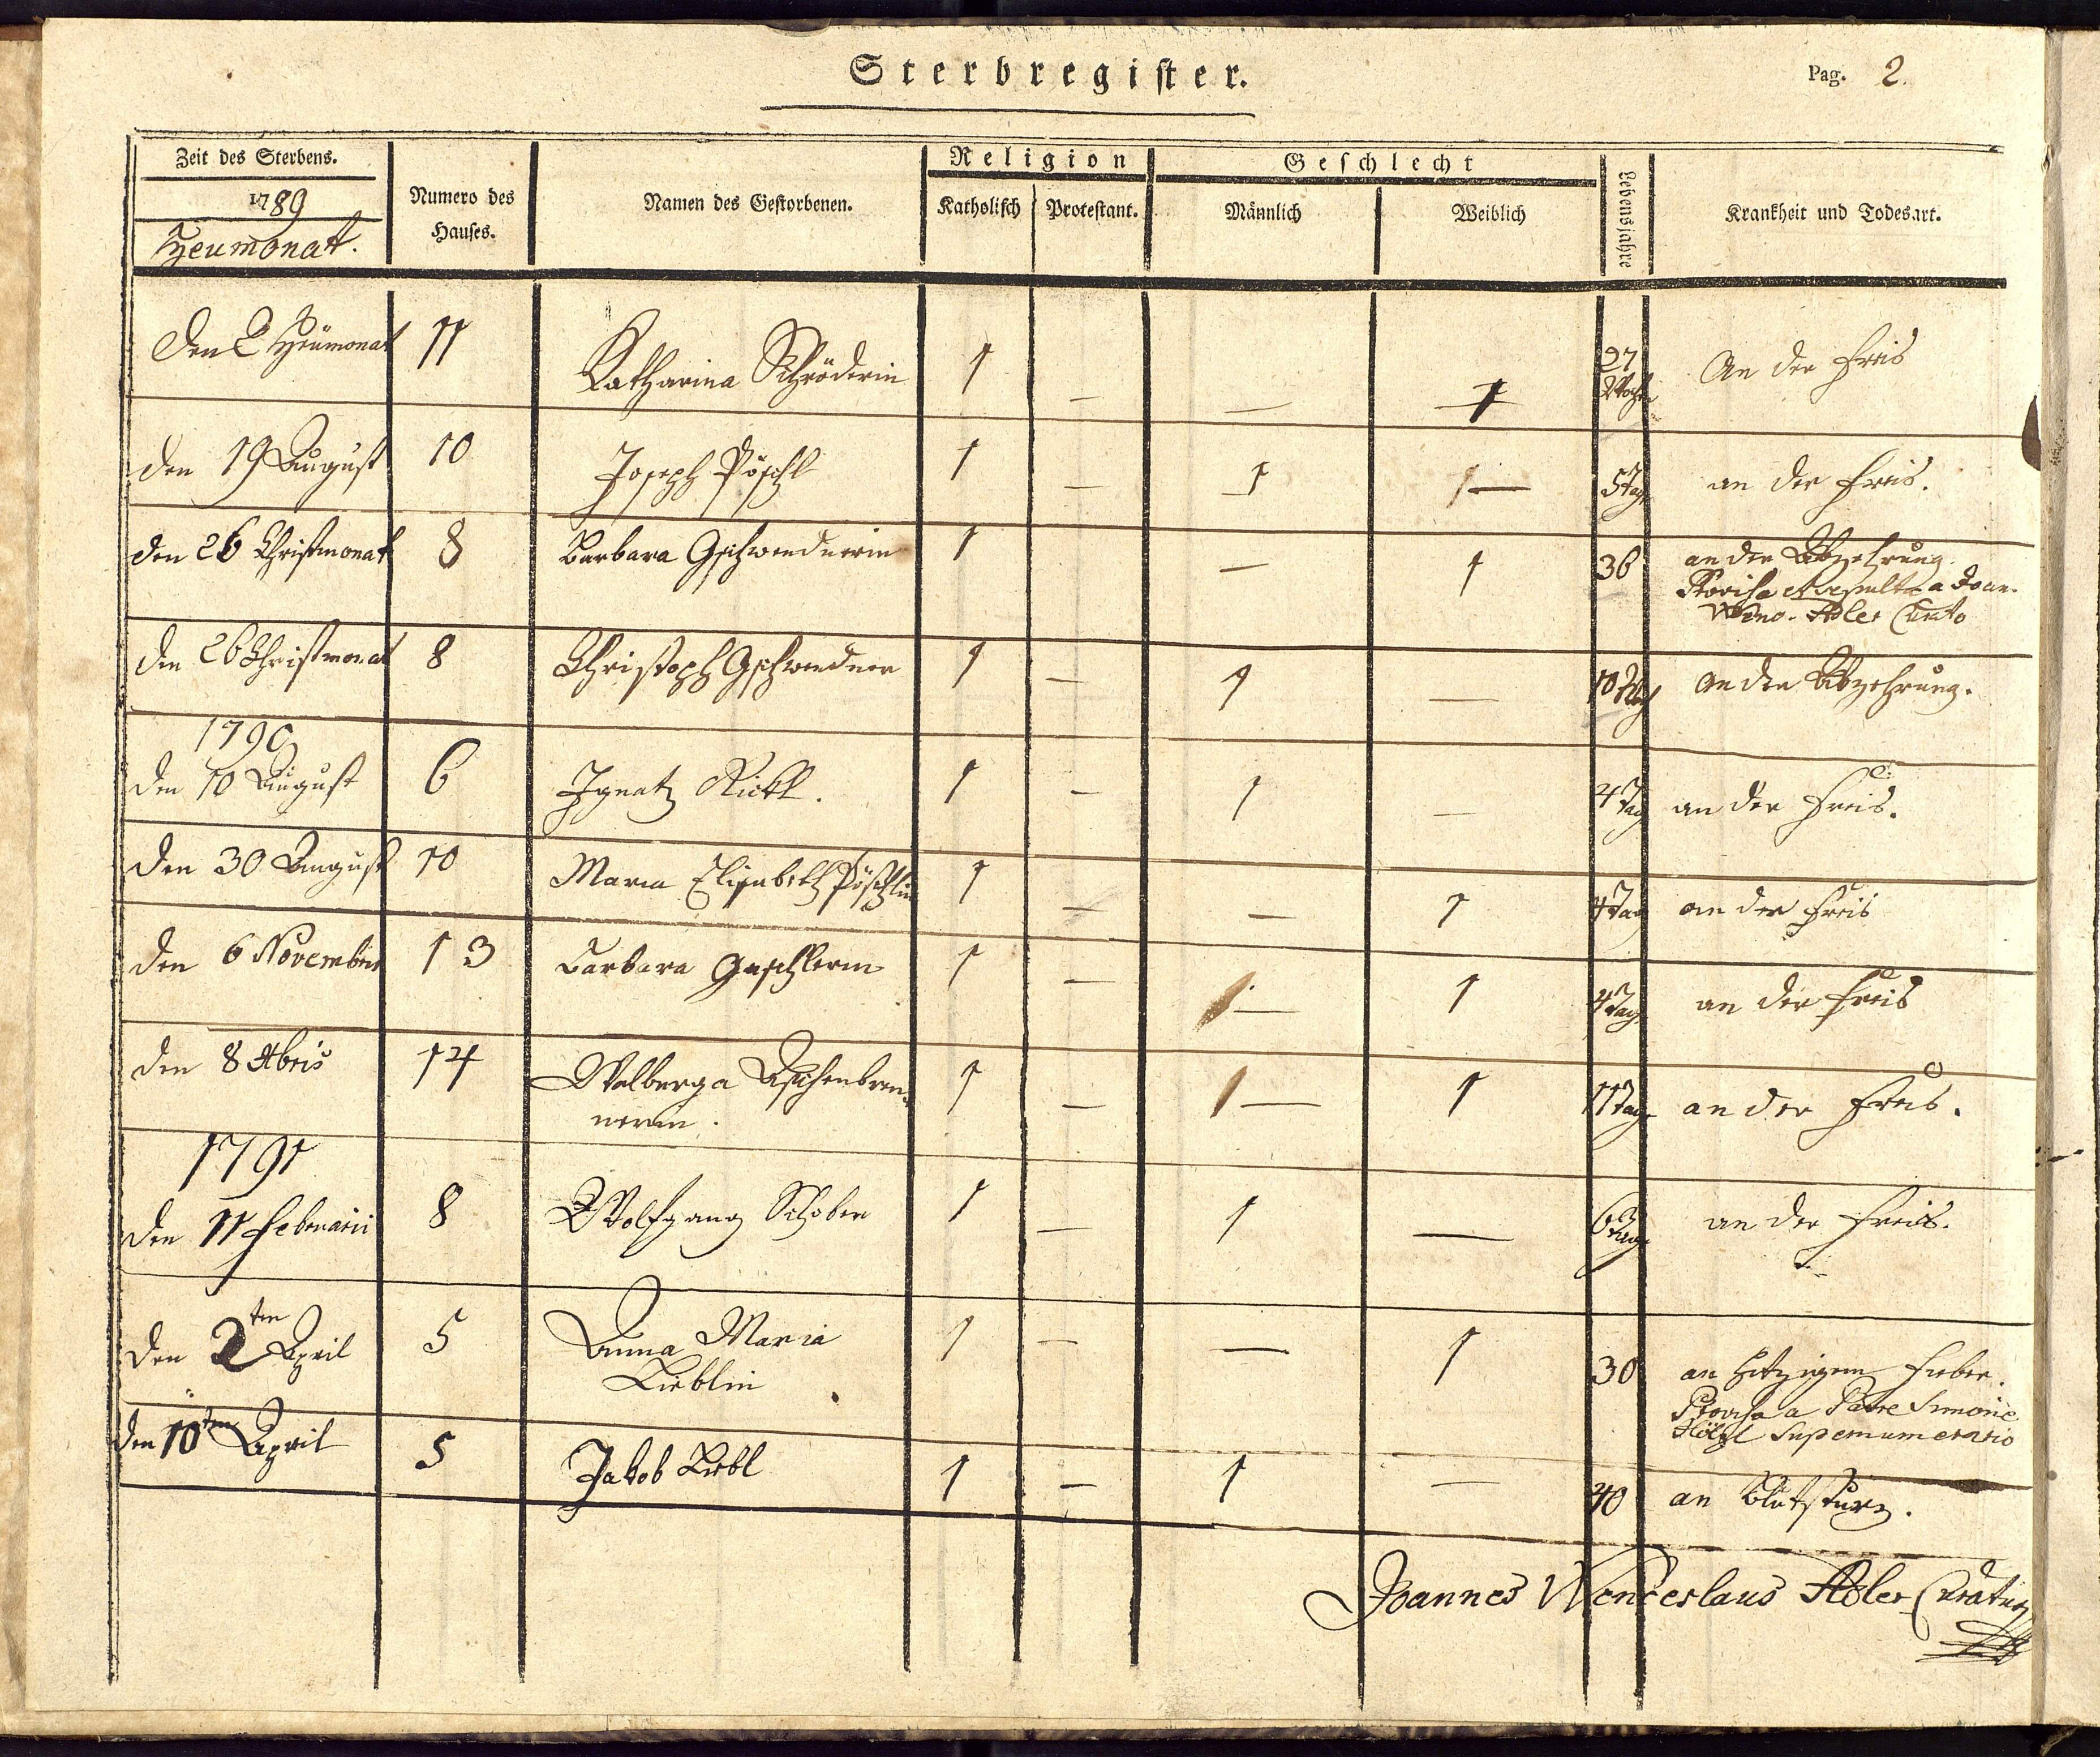 Sterbregister.
Pag. 2.
Zeit des Sterbens.
1789
Heumonat.
Numero des
Hauses.
Namen des Gestorbenen.
Religion
Katholisch
Protestant.
Geschlecht
Männlich
Weiblich
Lebensjahre
Krankheit und Todesart.
Den 2 Heumonat 11 Katharina Schröderin 1 — — 1 27 Woch An der Freis
den 19 August 10 Joseph Pöschl 1 — 1 — 5 Tag an der Freis.
den 26 Christmonat 8 Barbara Gschwendnerin 1 — 1 36 an der Abzehrung
Provisa et sepulta a Joan.
Adler Curato
den 26 Christmonat 8 Christoph Gschwendner 1 — 1 — 10 An der Abzehrung.
1790
den 10 August 6 Ignatz Rickl. 1 — 1 — 4 Tag an der Freis.
den 30 August 10 Maria Elisabeth Pöschlin 1 — — 1 4 Tag an der Freis
den 6 Novembris 13 Barbara Gaschlerin 1 — — 1 4 Tag an der Freis
den 8 14 Walburga Aschenbren-
nerin. 1 — — 1 11 Tag an der Freis.
1791
den 11 Februarii 8 Wolfgang Schober 1 — 1 — 6 Tag an der Freis.
den 2ten April 5 Anna Maria
Lieblin 1 — — 1 30 an hitzigem Fieber.
Provisa a Patre Simone
Hölzl Supernumerario
den 10ten April 5 Jakob Liebl 1 — 1 — 40 an Blutsturz.
Joannes Wenceslaus Adler Curatus